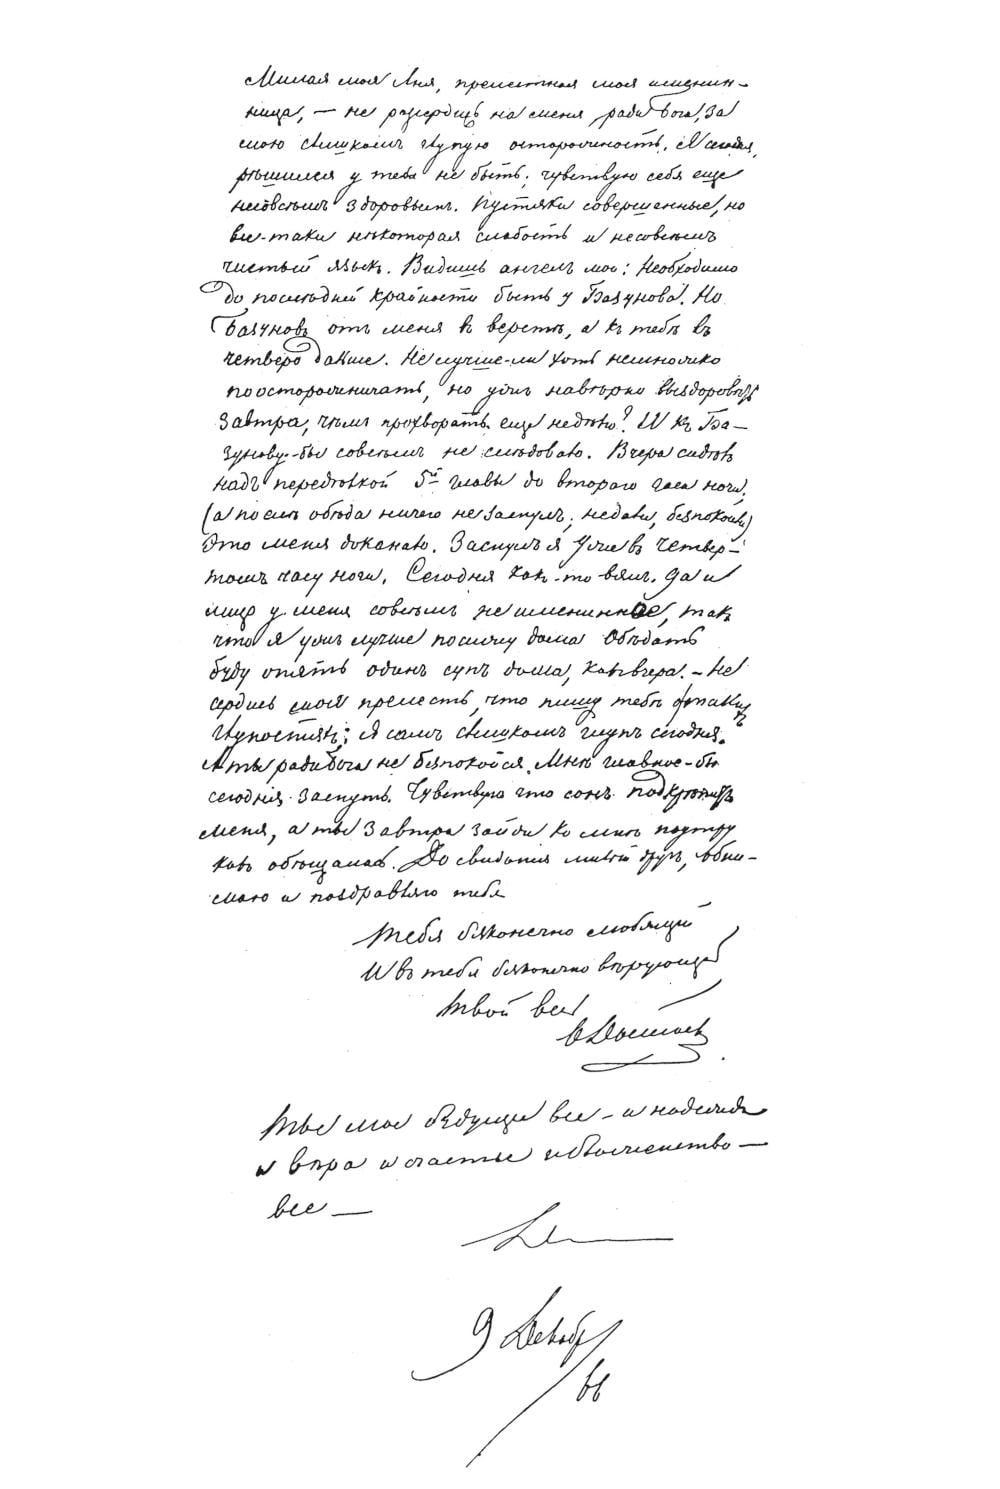 Милая моя Аня, прелестная моя именин-
ница, — не рассердись на меня ради Бога, за
мою слишком глупую осторожность. Я сегодня
рѣшился у тебя не быть; чувствую себя еще
несовсѣмъ здоровымъ. Пустяки совершенные, но
все-таки нѣкоторая слабость и несовсѣмъ
чистый языкъ. Видишь ангелъ мой: Необходимо
до послѣдней крайности быть у Базунова. Но
Базуновъ отъ меня въ верстѣ, а къ тебѣ въ
четверо дальше. Не лучше-ли хоть немножко
поосторожничать, но ужъ навѣрно выздоровѣть
завтра, чѣмъ прохворать еще недѣлю? И къ Ба-
зунову-бы совсѣмъ не слѣдовало. Вчера сидѣлъ
надъ передѣлкой 5й главы до втораго часа ночи,
(а послѣ обѣда ничего не заснулъ; недали, безпокоили)
Это меня доканало. Заснулъ я уже въ четвер-
томъ часу ночи. Сегодня какъ-то вялъ. Да и
лицо у меня совсѣмъ не имениннoe, такъ
что я ужъ лучше посижу дома. Обѣдать
буду опять одинъ супъ дома, какъ вчера. — Не
сердись моя прелесть, что пишу тебѣ о такихъ
глупостяхъ; Я самъ слишкомъ глупъ сегодня.
А ты ради Бога не безпокойся. Мнѣ главное-бы
сегодня заснуть. Чувствую что сонъ подкрѣпитъ
меня, а ты завтра зайди ко мнѣ поутру
какъ обѣщалась. До свиданія милый другъ, обни-
маю и поздравляю тебя
Тебя безконечно любящій
И въ тебя безконечно вѣрующій
Твой весь
Ѳ Достоев
Ты мое будущее все — и надежда
и вѣра и счастье и блаженство —
все —
9 Декабр/66